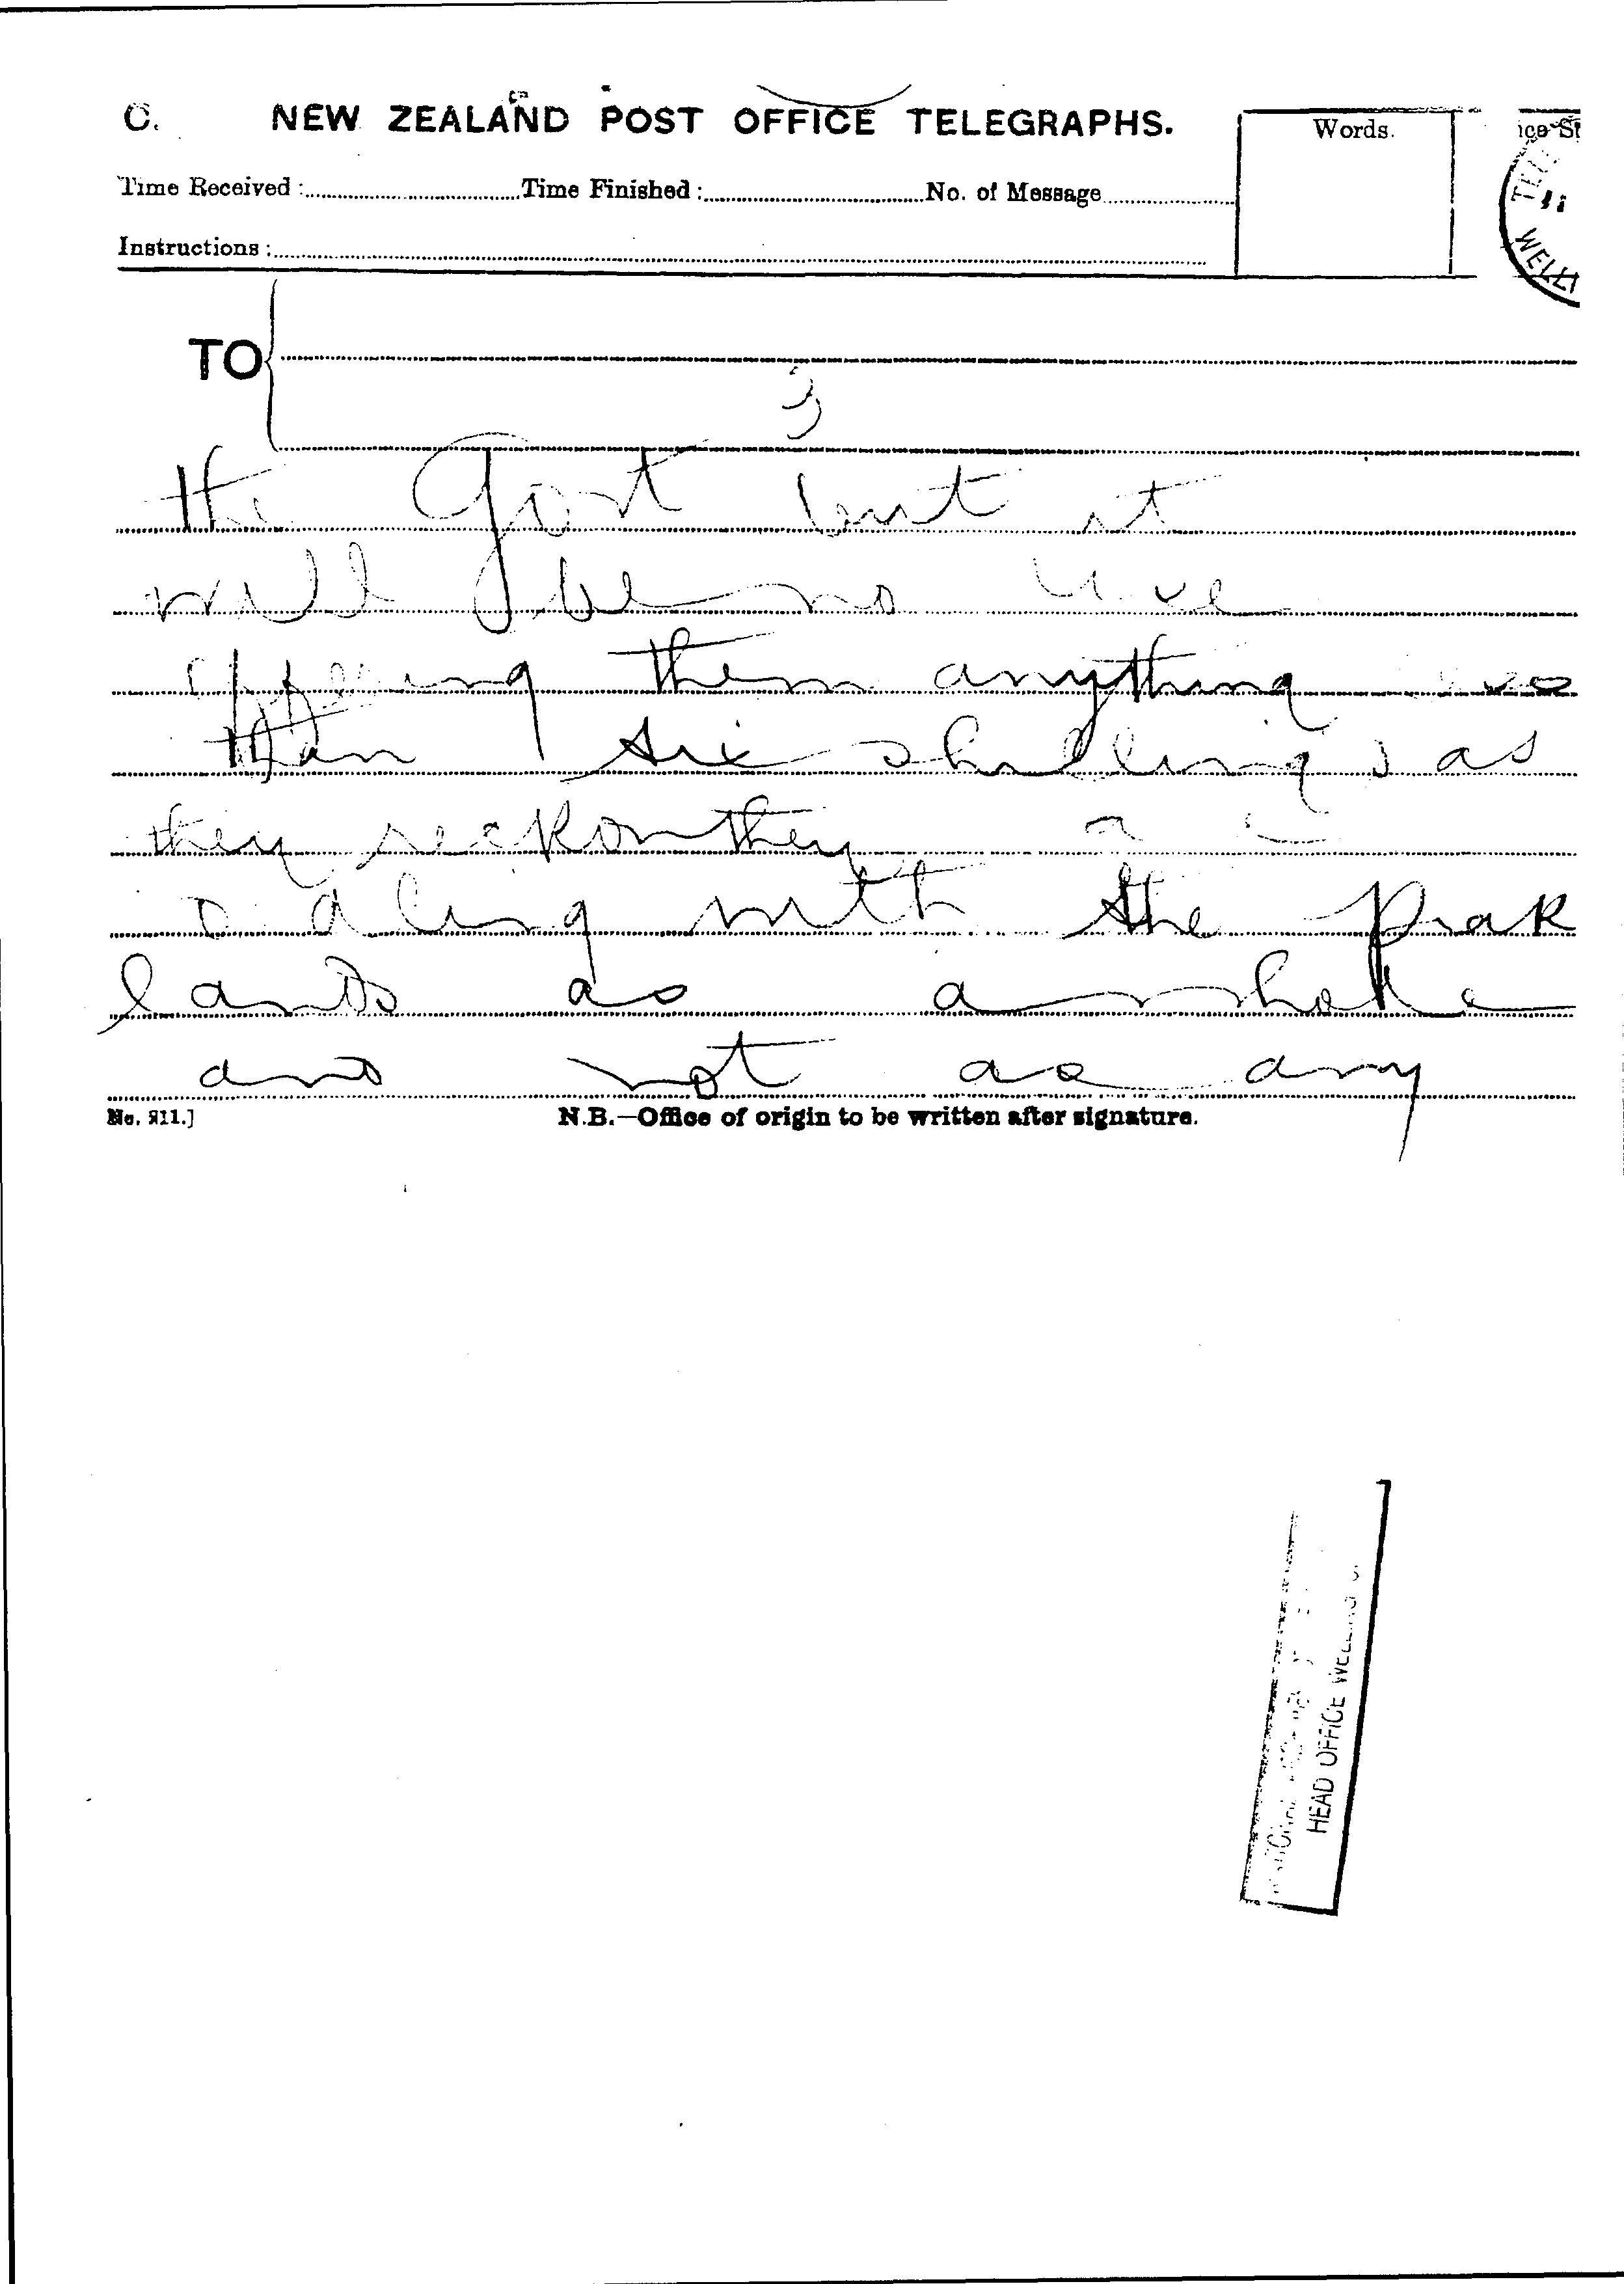 C. NEW ZEALAND POST OFFICE TELEGRAPHS.
Words.
Time Received : Time Finished : No. of Message
Instructions :
TO
3
the Govt but it
will be no use
offering them anything
than six shillings as
they reckon they
with the Prak
lands as a whole
and not as any
No. 211.] N.B.—Office of origin to be written after signature.
HEAD OFFICE